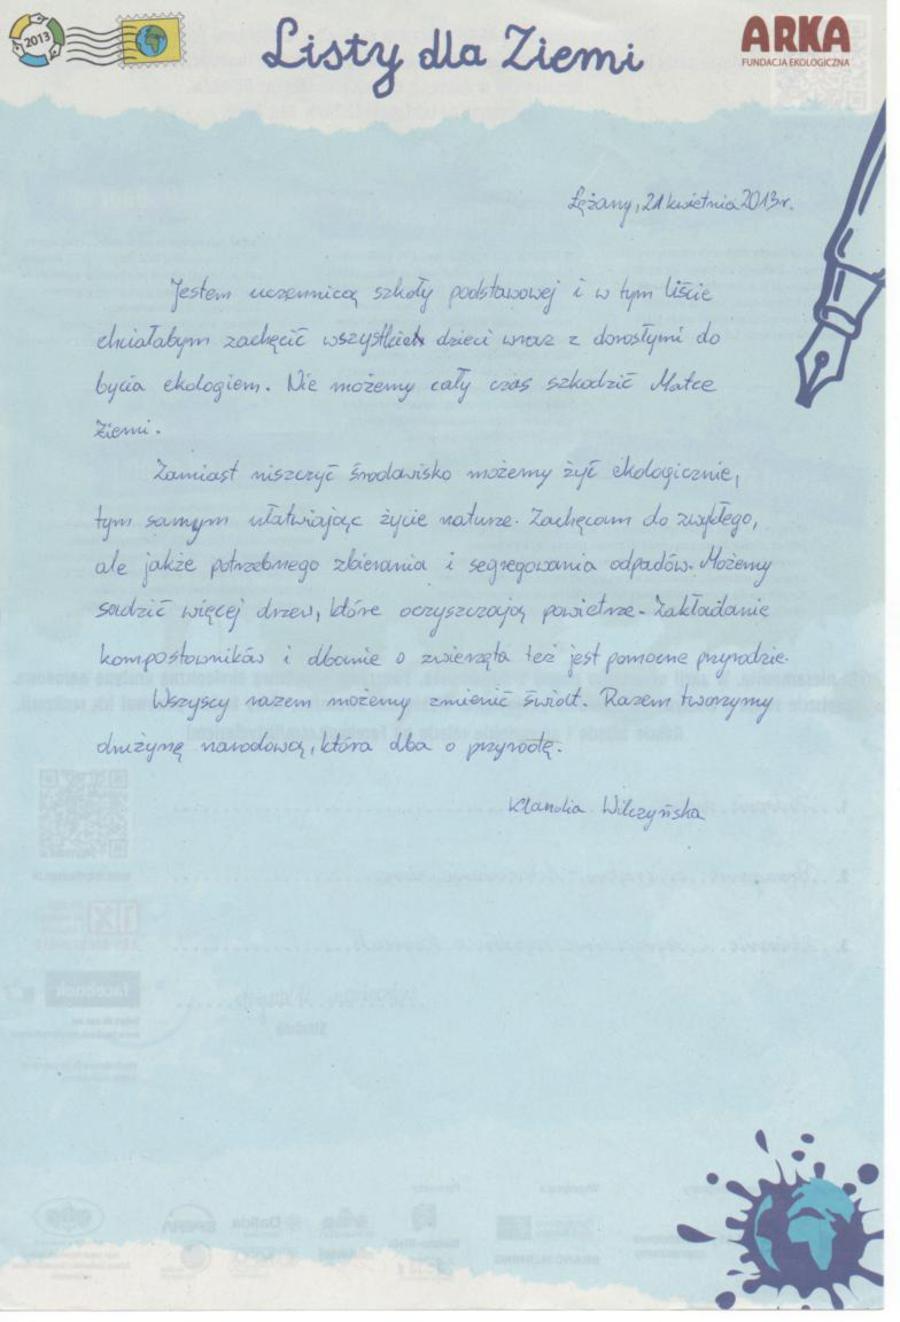 2013
Listy dla Ziemi
ARKA
FUNDACJA EKOLOGICZNA
Łężany, 21 kwietnia 2013r.
Jestem uczennicą szkoły podstawowej i w tym liście
chciałabym zachęcić wszystkich dzieci wraz z dorosłymi do
bycia ekologiem. Nie możemy cały czas szkodzić Matce
Ziemi.
Zamiast niszczyć środowisko możemy żyć ekologicznie,
tym samym ułatwiając życie naturze. Zachęcam do zwykłego,
ale jakże potrzebnego zbierania i segregowania odpadów. Możemy
sadzić więcej drzew, które oczyszczają powietrze. Zakładanie
kompostowników i dbanie o zwierzęta też jest pomocne przyrodzie.
Wszyscy razem możemy zmienić świat. Razem tworzymy
drużynę narodową, która dba o przyrodę.
Klaudia Wilczyńska